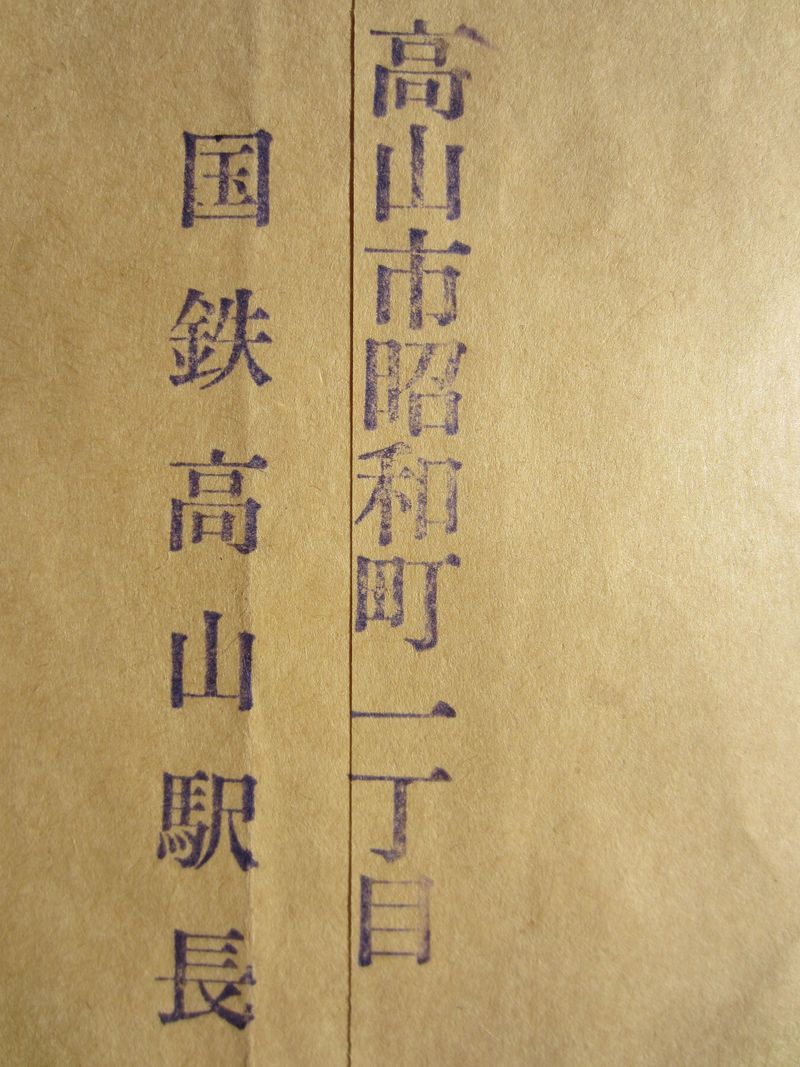 高山市昭和町一丁目
国鉄高山駅長